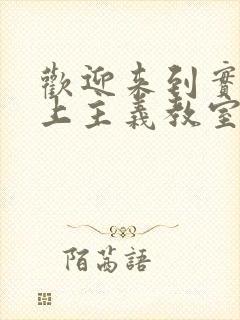 歡迎來到實
上主義教室
陌萵語